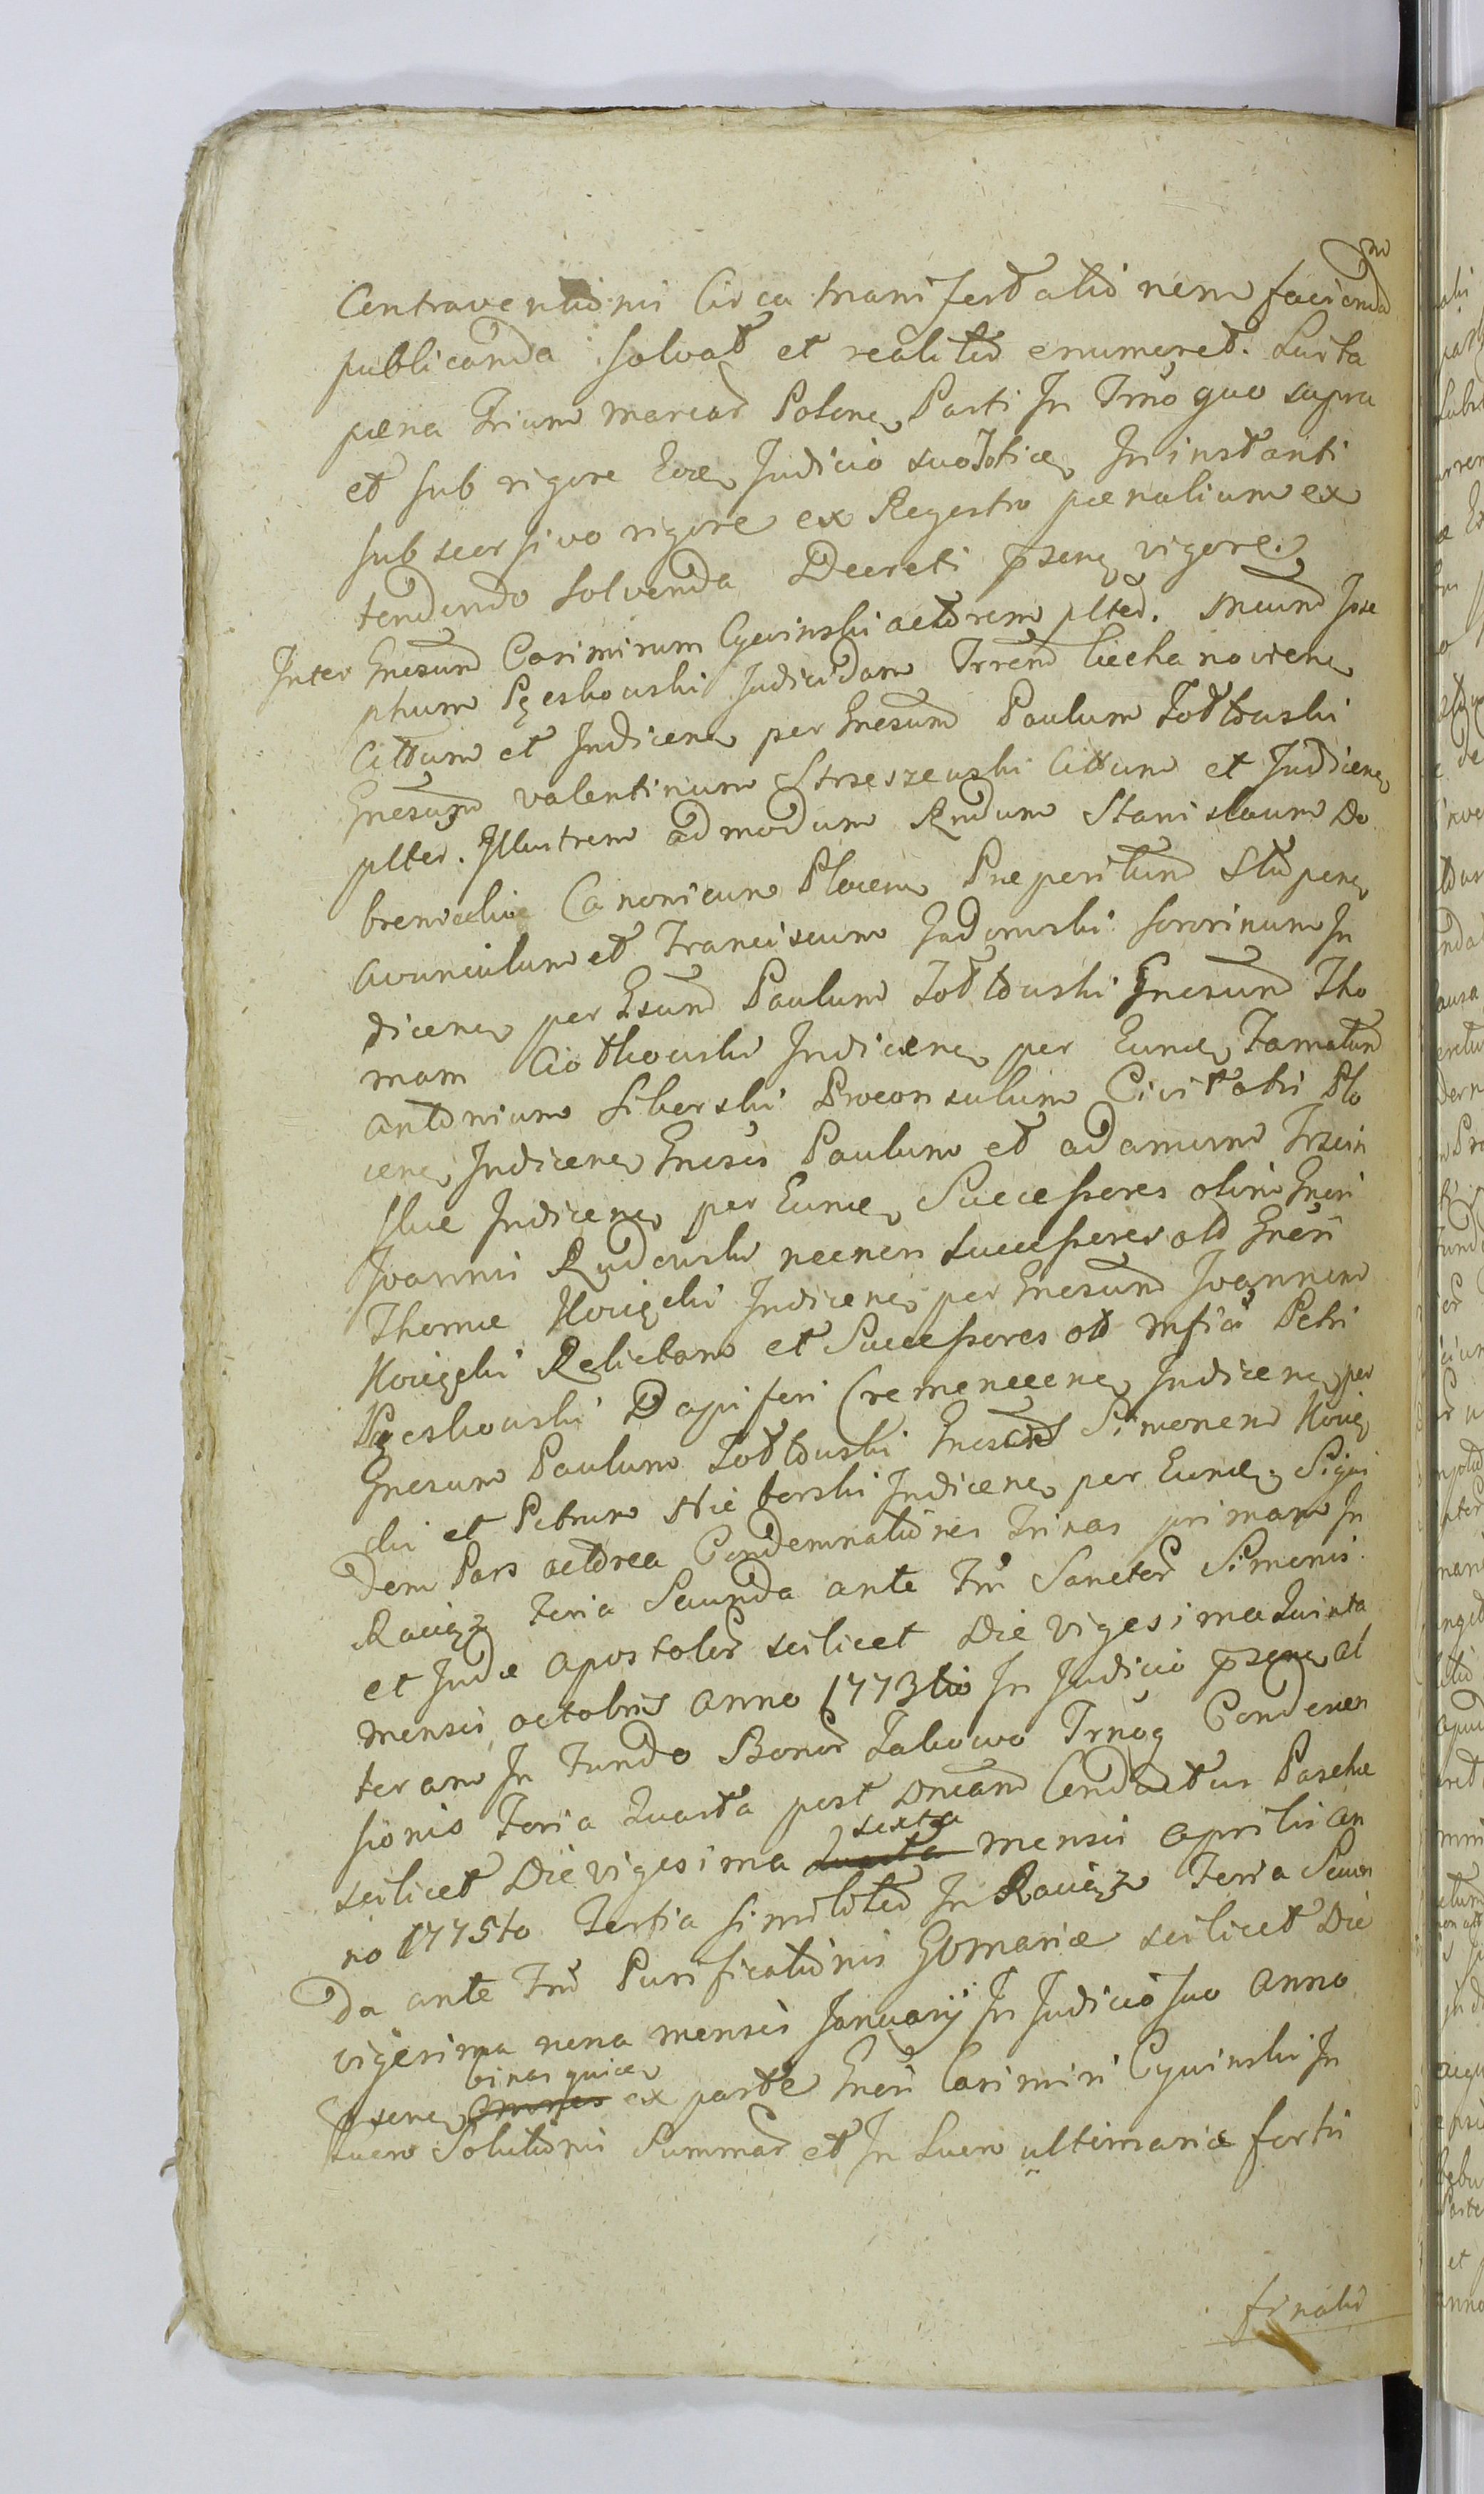 Contraventionis Circa manifestationem faciend
publicanda solvat et realiter enumeret. Lucta
pæna Trium marcar Polone Parti In Trnö quo supra
et sub rigore Ejce Judicio suo Totice In instanti
sub secursivo rigore ex Regestro pænalium ex
tendendo solvenda Decreti psene vigore.
Inter Gnesum Casimirum Cywinski actorem plted. Mcum Jose
phum Pęeskowski Judicidam Trrend Ciechanoviene
Cittum et Indicene per Gnesum Paulum
Gnesum valentinum Strzeszewski Cittum et Judicene
plted. Illustrem admodum Rndum Stanislaum Do
Canonicum Plocene Præpositum Stupene
avunculum et Franciscum Sadowski sororinum In
dicene per Gsum Paulum Gnesum Tho
mam Ciotkowski Indicene per Eunde Famatum
antonium Siberski Proconsulum Civitatis Plo
cene Indicene Gneses Paulum et adamum Trzcin
skie Indicene per Eunde Successores olim Gnesi
Joannis Rudowski necnon successores old Gnesi
Thomæ Indicene per Gnesum Joannem
Relictam et Successores ol Mfici Petri
Pęeskowski Dapiferi Cremenecene Indicene per
Gnesum Paulum Gnesum Simonem
cki et Petrum Indicene per Eunde Siqui
dem Pars actorea Condemnationes trinas primam In
Raciąz Feria Secunda ante Fm Sanctor Simonis
et Judæ apostolor scilicet Die vigesima Quinta
mensis octobris anno 1773tio In Judicio psene al
teram In Fundo Bonor Trnög Conden
sionis Feria Quarta post Dncam Conductus Paschæ
scilicet Die vigesima Quarta sexta mensis aprilis an
no 1775to Tertia similiter In Raciąz Feria Secun
da ante Fm Purificationis Gomariæ scilicet Die
vigesima nona mensis Januarij In Judicio suo anno
psene omnes binas quice ex parte Gnesi Casimiri Cywinski In
Luen Solutionis Summar et In Luen ultimariæ fortis
finalis